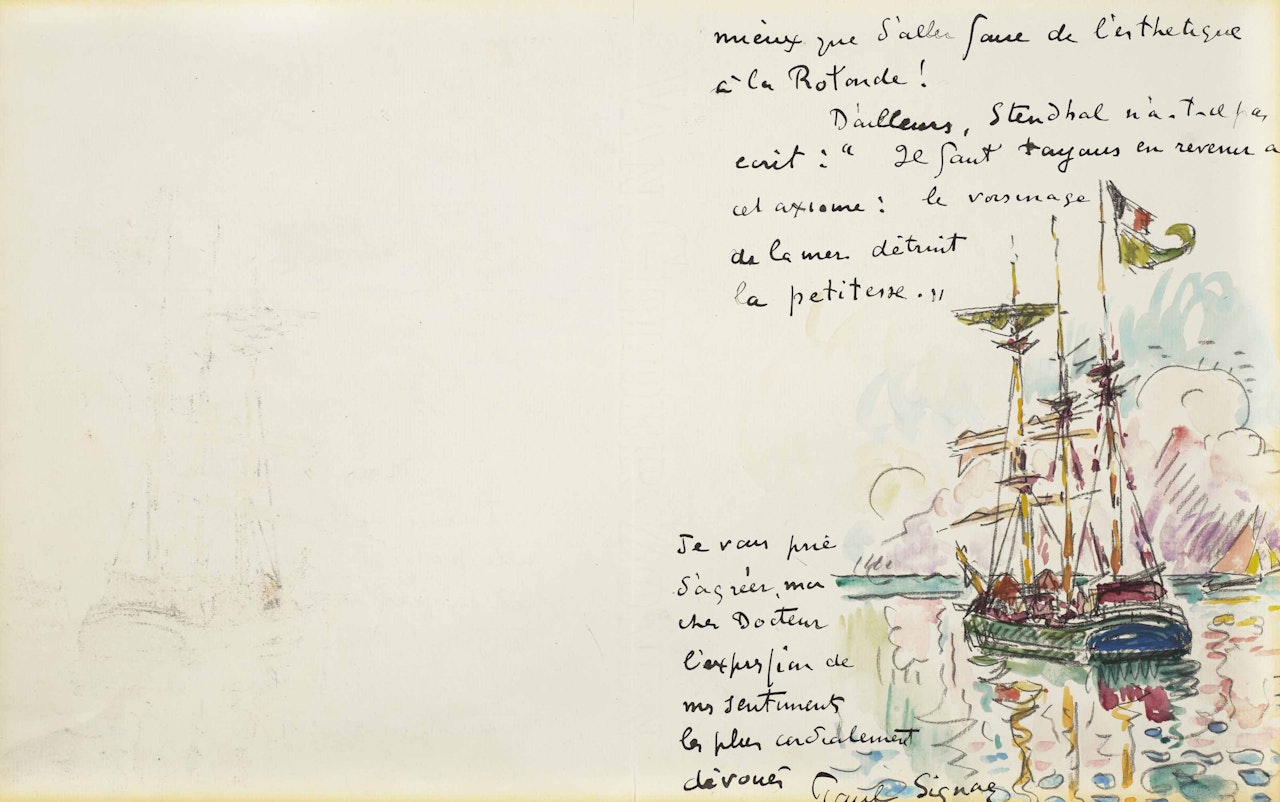 mieux que d'aller faire de l'esthetique
à la Rotonde !
D'ailleurs, Stendhal n'a-t-il pas
ecrit : " Il faut en revenir a
cet axiome : le voisinage
de la mer détruit
la petitesse. "
Je vous prie
d'agréer, mon
cher Docteur
l'expression de
mes sentiments
les plus cordialement
dévoués Paul Signac